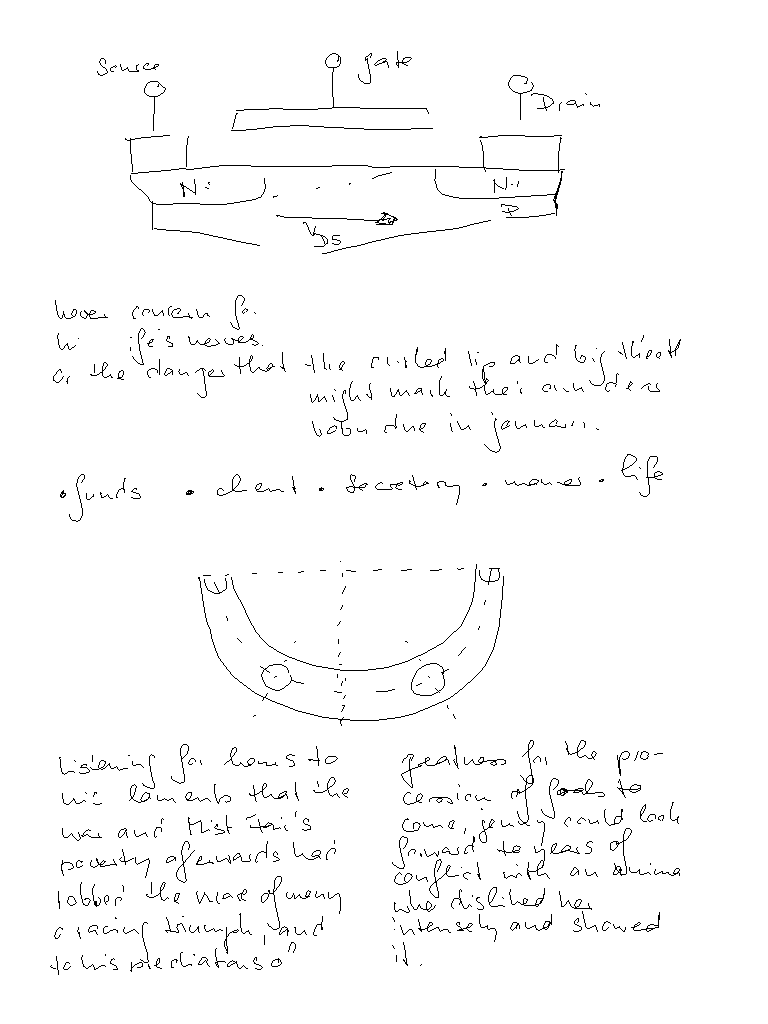 Source
gate
Drain
N
N
P
VDS
never concern for
ife's nerves.
or the danger that the curled lip and big theeth
might mark their own dear
baby due in january.
• funds • client • secretary • maner • life
Listening for hours to
his laments that the
war and Mist Fair's
poverty afterwards had
robbed the mare of many
a racing triumph, and
to his predictions of
greatness for the pro-
cession of foals to
come, jenny could look
forward to years of
conflict with an anima
who disliked her
intensely and showed
it.